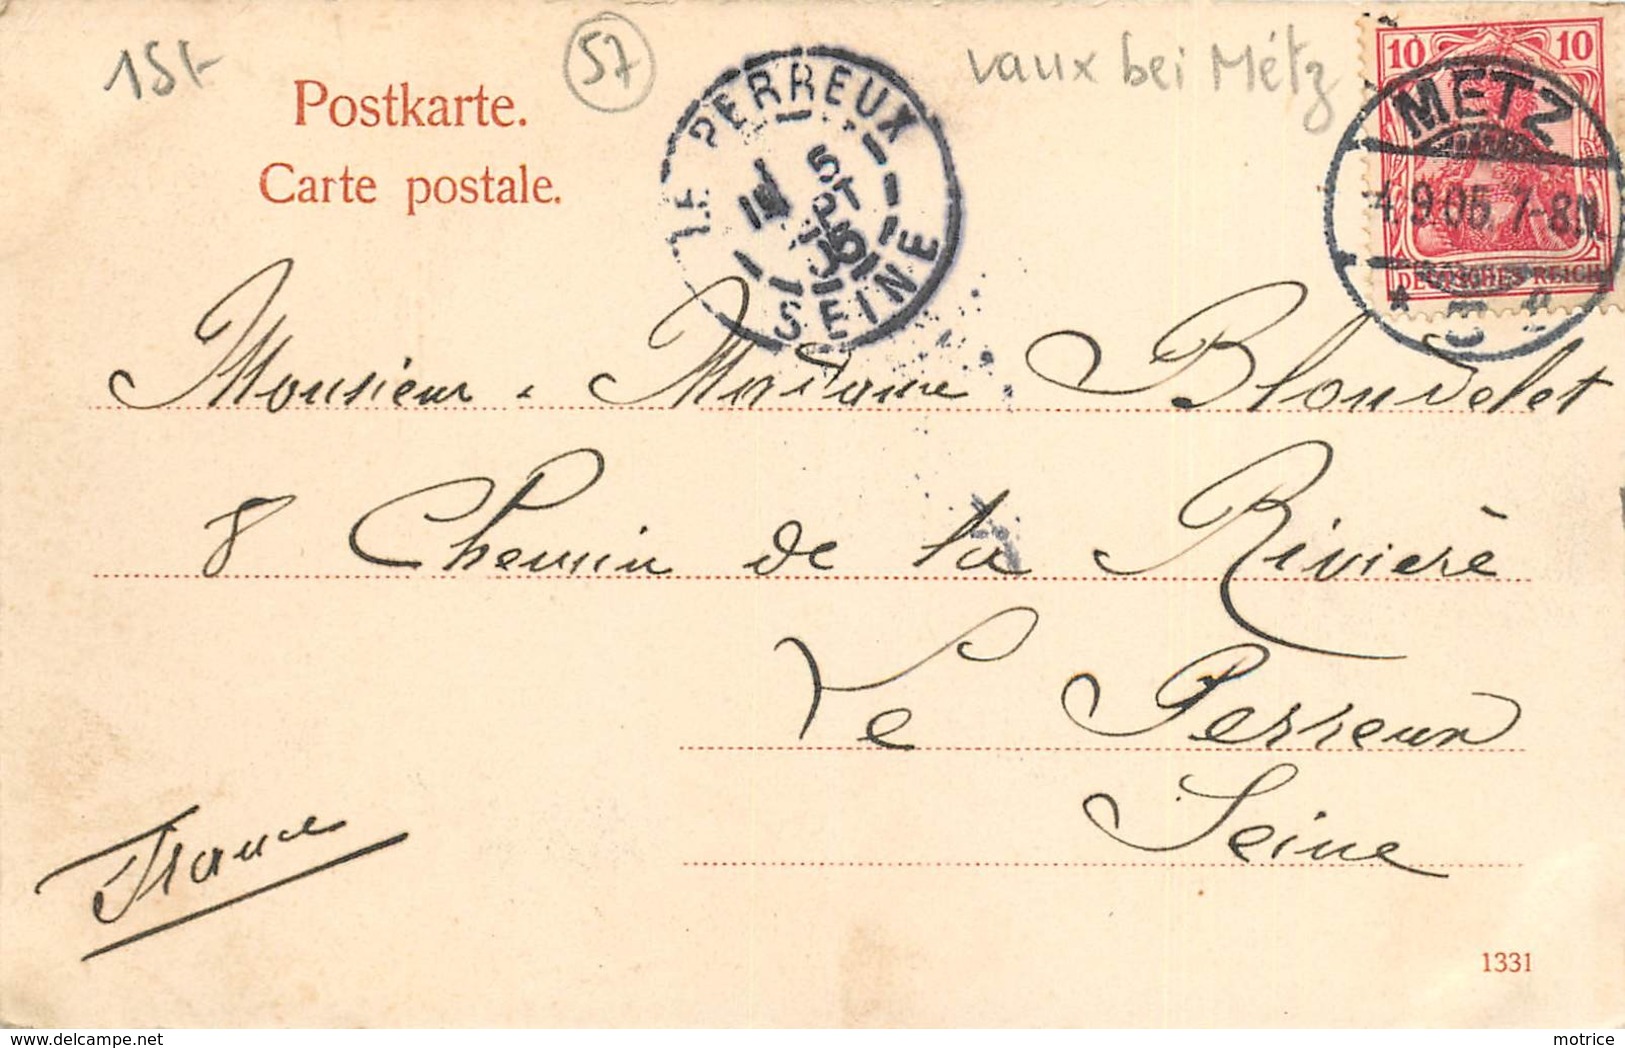 15f
57
vaux bei Métz
Postkarte.
Carte postale.
LE PERREUX
5
05
SEINE
10 10
METZ
4.9.05. 7-8N.
DEUTSCHES REICH
Monsieur . Madame Blondelet
8 Chemin de la Rivière
Le Perreux
Seine
France
1331
www.delcampe.net
motrice